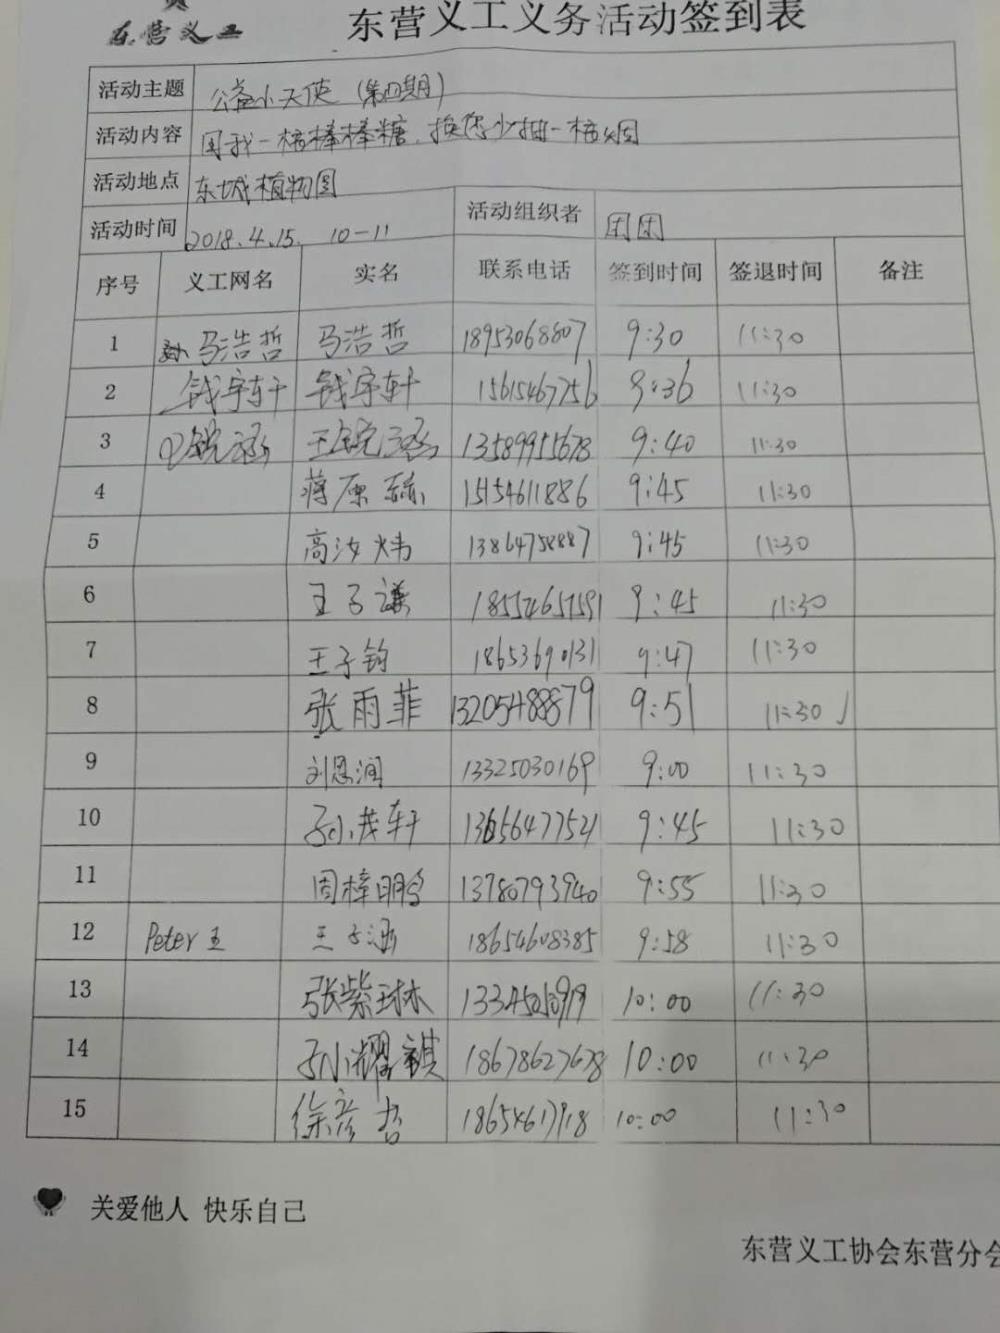 东营义工
东营义工义务活动签到表
活动主题 公益小天使(第四期)
活动内容 用我一根棒棒糖,换您少抽一根烟
活动地点 东城植物园
活动时间 2018.4.15. 10-11 活动组织者 团团
序号 义工网名 实名 联系电话 签到时间 签退时间 备注
1 马浩哲 马浩哲 18953068807 9:30 11:30
2 钱宇轩 钱宇轩 15615467756 9:36 11:30
3 锐涵 王锐涵 13589955678 9:40 11:30
4 蒋原 15154611886 9:45 11:30
5 高汝炜 13864758887 9:45 11:30
6 王子谦 18554657591 9:45 11:30
7 王子钧 18653690131 9:47 11:30
8 张雨菲 13205488879 9:51 11:30
9 刘恩润 13325030169 9:00 11:30
10 孙茂轩 13656477521 9:45 11:30
11 周樟鹏 13780793940 9:55 11:30
12 Peter王 王子涵 18654608385 9:58 11:30
13 张紫琳 10:00 11:30
14 孙耀祺 18678627678 10:00 11:30
15 徐彦哲 10:00 11:30
关爱他人 快乐自己
东营义工协会东营分会